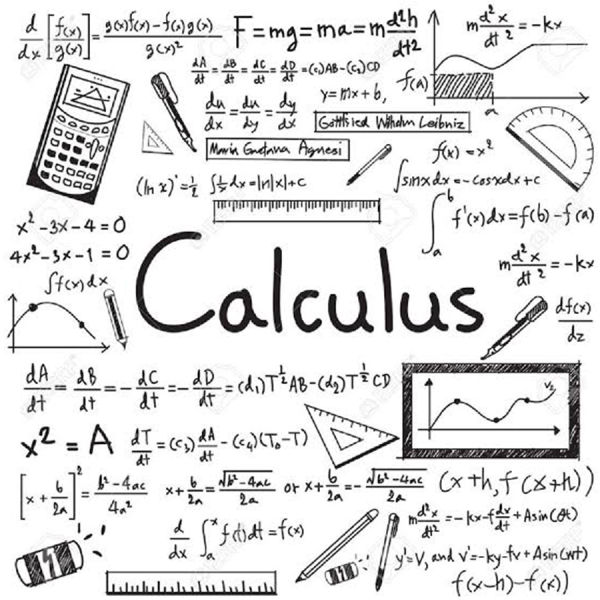 d/dx [f(x)/g(x)] = g(x)f(x) - f(x)g(x) / g(x)²
F = mg = ma = m d²h/dt²
m d²x/dt² = -kx
dA/dt = dB/dt = dC/dt = dD/dt = (c₁)AB-(c₂)CD
f(a)
a
du/dx = du/dy = dy/dx
y = mx + b,
Gottfried Wilhelm Leibniz
Maria Gaetana Agnesi
f(x) = x²
(ln x)' = 1/2
∫ 1/x dx = ln|x|+c
∫ sinx dx = -cosx dx + c
∫_a^b f'(x)dx = f(b) - f(a)
x² - 3x - 4 = 0
4x² - 3x - 1 = 0
∫f(x)dx
Calculus
m d²x/dt² = -kx
df(x)/dz
dA/dt = dB/dt = - dC/dt = - dD/dt = (d₁)T^½ AB - (d₂)T^½ CD
V₂
x² = A
dT/dt = (c₃) dA/dt - (c₄)(T₀-T)
[x + b/2a]² = b²-4ac / 4a²
x + b/2a = √b²-4ac / 2a or x + b/2a = - √b²-4ac / 2a
(x+h, f(x+h))
d/dx ∫_a^x f(t)dt = f(x)
m d²x/dt² = -kx - f dx/dt + Asin(θt)
y' = V, and v' = -ky - fv + Asin(wt)
f(x-h) - f(x))